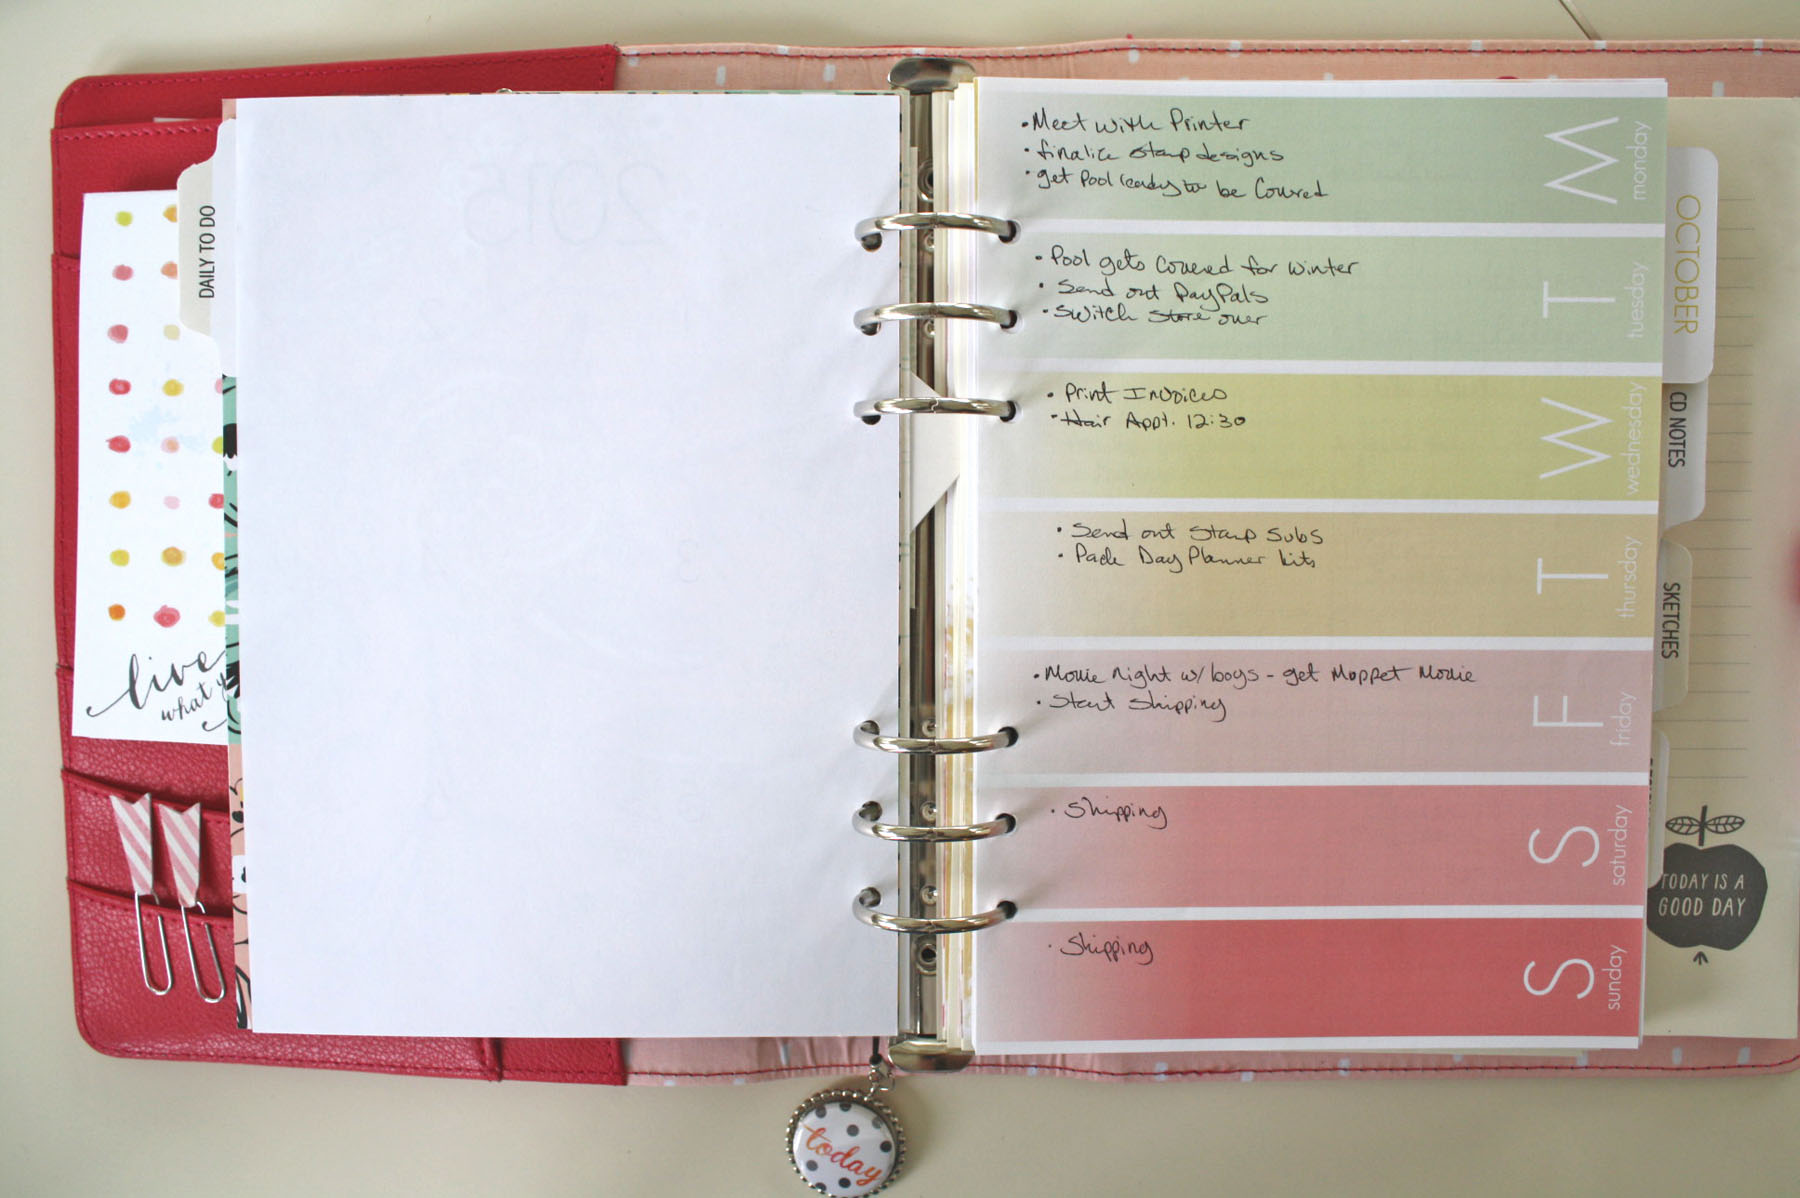 DAILY TO DO
live
what y
2015
• Meet with Printer
• finalize stamp designs
• get pool ready to be Covered
M
monday
• Pool gets Covered for winter
• Send out PayPals
• Switch store over
T
tuesday
• Print Invoices
• Hair Appt. 12:30
W
wednesday
• Send out Stamp Subs
• Pack Day Planner kits
T
thursday
• Movie night w/ boys - get Moppet Movie
• Start Shipping
F
friday
• Shipping
S
saturday
• Shipping
S
sunday
OCTOBER
CD NOTES
SKETCHES
TODAY IS A
GOOD DAY
today